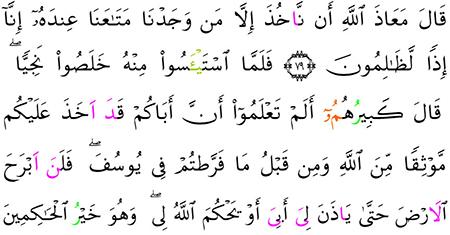 قَالَ مَعَاذَ اَ۬للَّهِ أَن نَّاخُذَ إِلَّا مَن وَجَدْنَا مَتَٰعَنَا عِندَهُۥٓ إِنَّآ
إِذًا لَّظَٰلِمُونَ ۝٧٩ فَلَمَّا اَ۪سْتَيْـَٔسُوا۟ مِنْهُ خَلَصُوا۟ نَجِيًّا ۖ
قَالَ كَبِيرُهُمُۥٓ أَلَمْ تَعْلَمُوٓا۟ أَنَّ أَبَاكُمْ قَدَ اَخَذَ عَلَيْكُم
مَّوْثِقًا مِّنَ اَ۬للَّهِ وَمِن قَبْلُ مَا فَرَّطتُمْ فِى يُوسُفَ ۖ فَلَنَ اَبْرَحَ
اَ۬لَارْضَ حَتَّىٰ يَاذَنَ لِىَ أَبِىَ أَوْ يَحْكُمَ اَ۬للَّهُ لِى ۖ وَهُوَ خَيْرُ اُ۬لْحَٰكِمِينَ